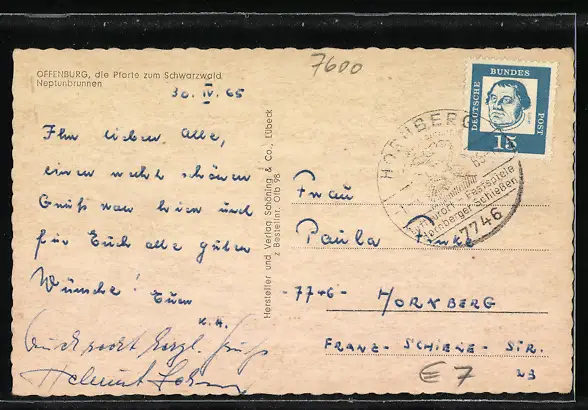 OFFENBURG, die Pforte zum Schwarzwald
Neptunbrunnen
7600
30. IV. 65
Ihr lieben Alle,
einen recht schönen
Gruß von hier und
für Euch alle guten
Wünsche! Euer
K.H.
Auch recht herzl. Grüße
Helmut
Hersteller und Verlag Schöning & Co., Lübeck
Bestellnr. Ofb 98
DEUTSCHE BUNDESPOST
15
HORNBERG
Festspiele
Hornberger Schießen
7746
Frau
Paula Finke
-7746- HORNBERG
FRANZ-SCHIELE-STR.
23
€ 7